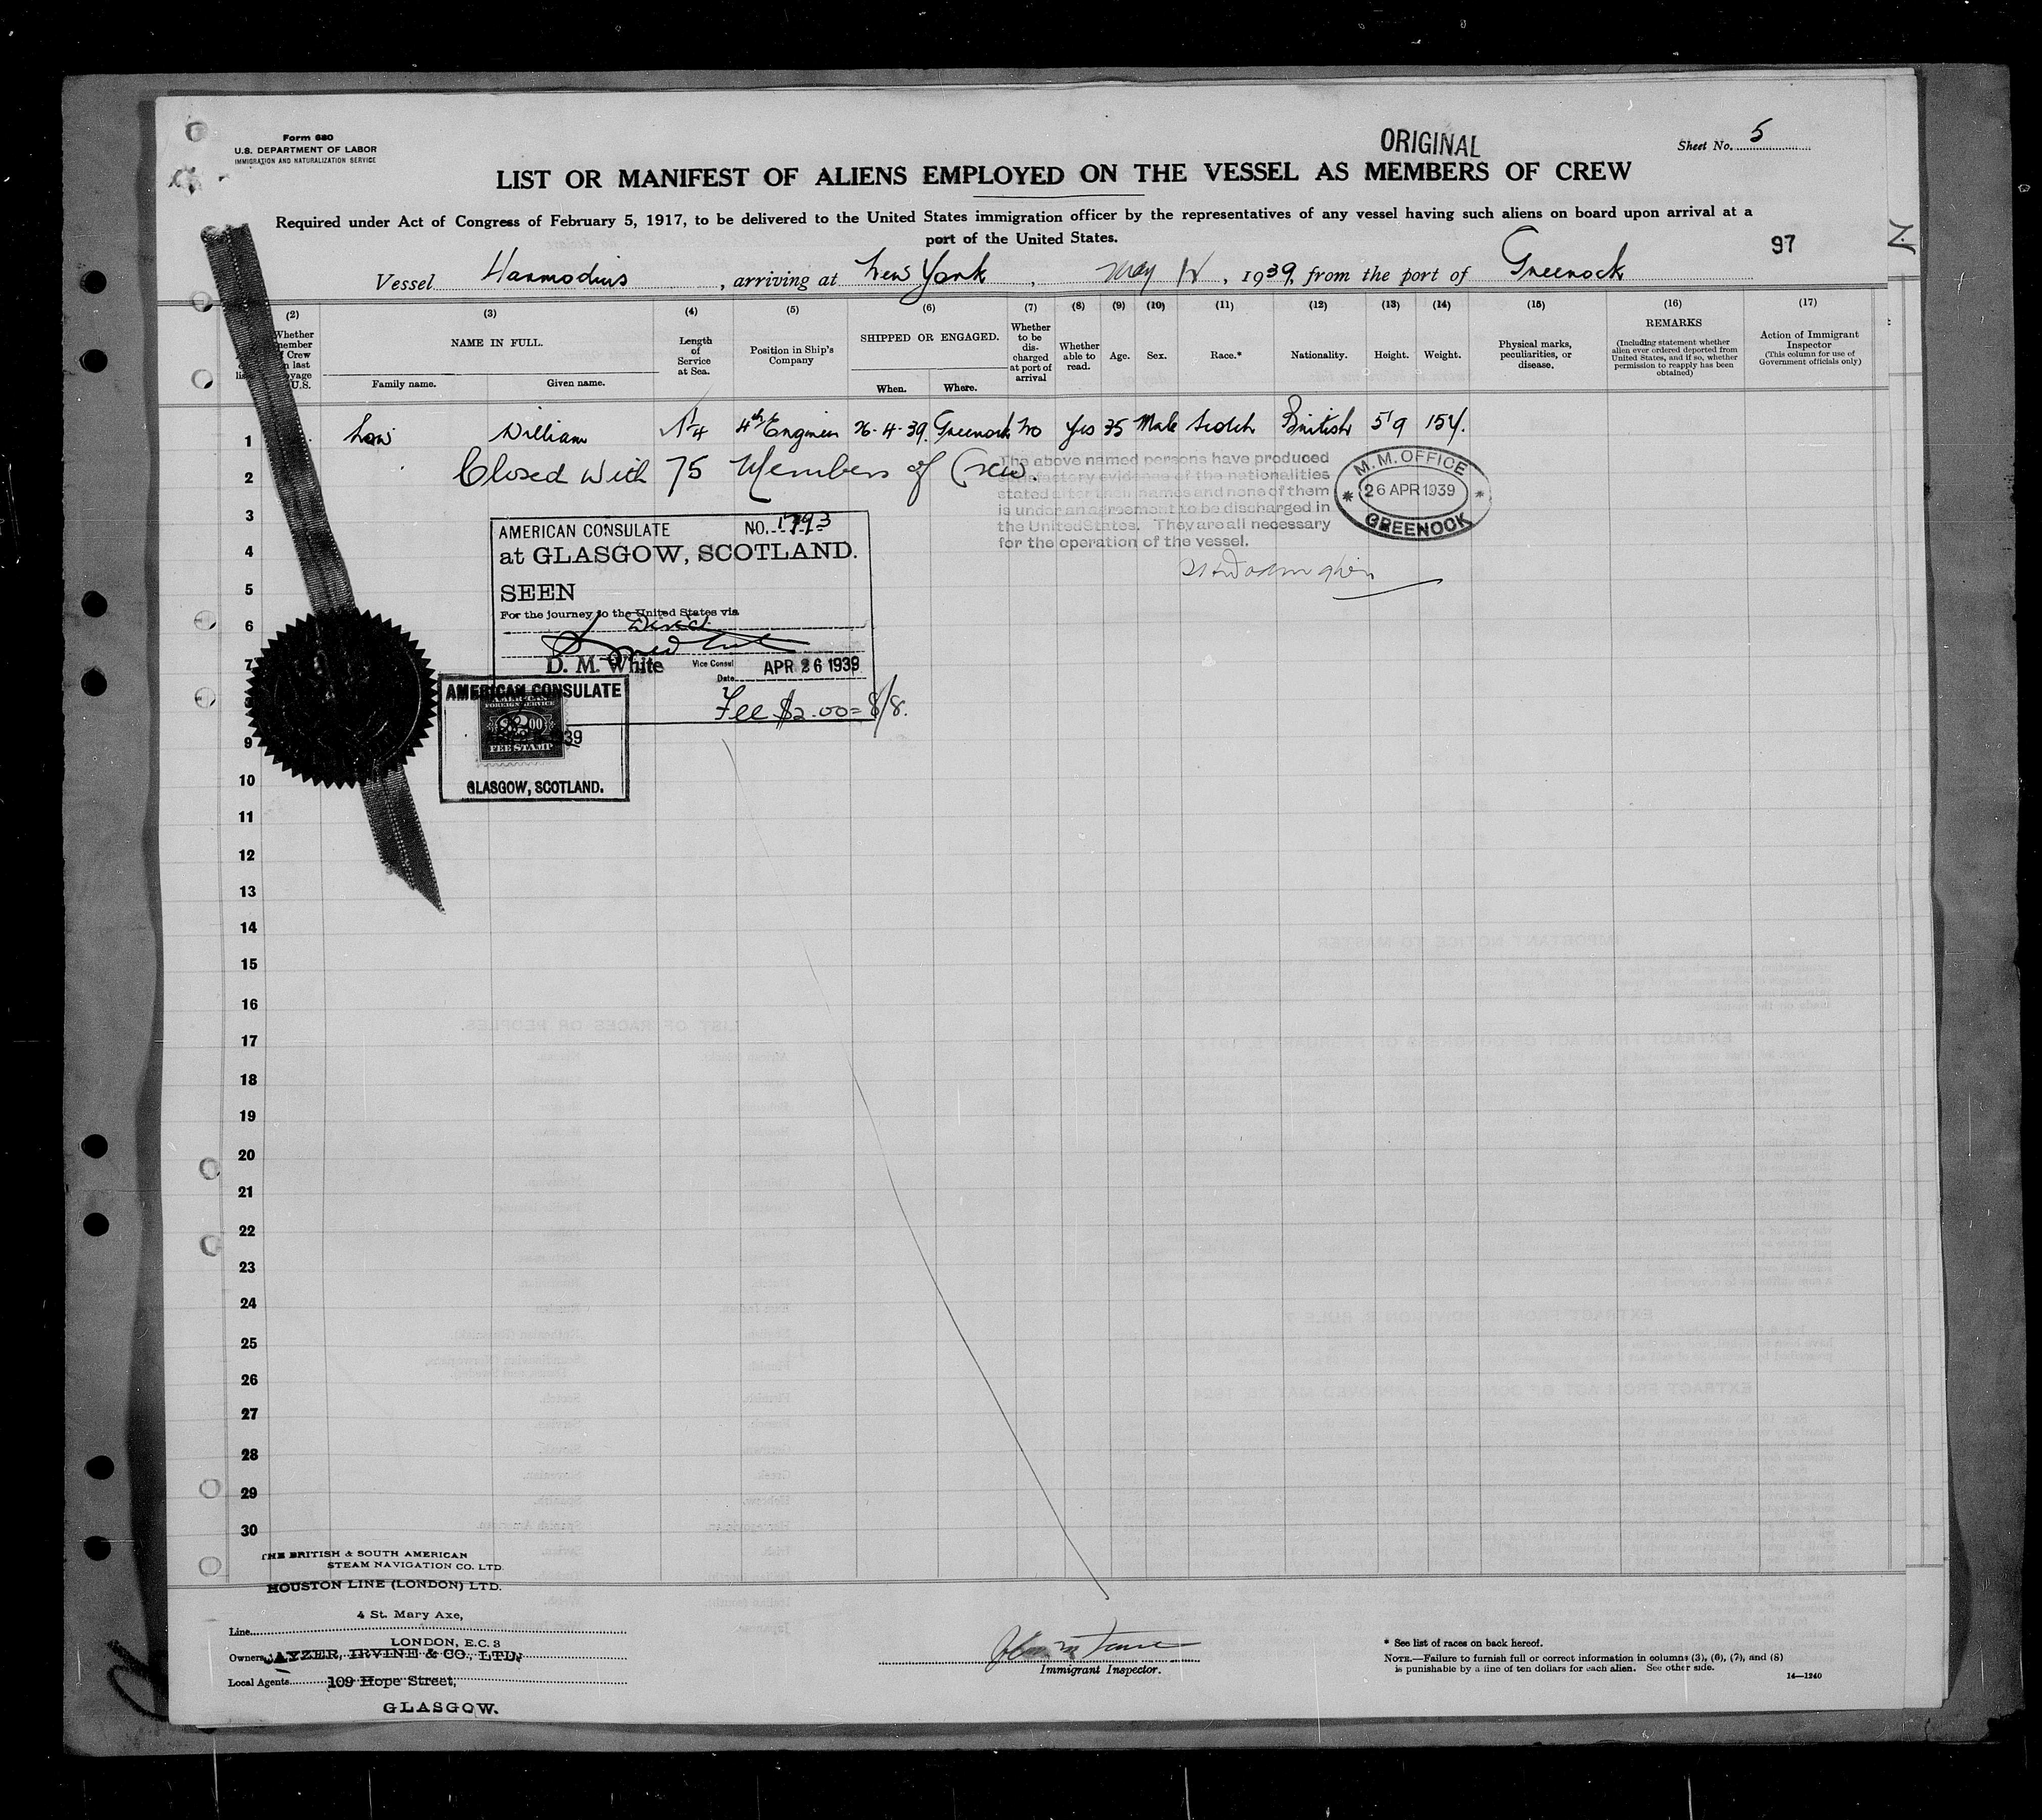 Form 680
U.S. DEPARTMENT OF LABOR
IMMIGRATION AND NATURALIZATION SERVICE
ORIGINAL
Sheet No. 5
LIST OR MANIFEST OF ALIENS EMPLOYED ON THE VESSEL AS MEMBERS OF CREW
Required under Act of Congress of February 5, 1917, to be delivered to the United States immigration officer by the representatives of any vessel having such aliens on board upon arrival at a
port of the United States.
97
Vessel Harmodius, arriving at New York, May 12, 1939, from the port of Greenock
(2) (3) (4) (5) (6) (7) (8) (9) (10) (11) (12) (13) (14) (15) (16) (17)
Whether
member
Crew
last
U.S.
NAME IN FULL.
Family name. Given name.
Length
of
Service
at Sea.
Position in Ship's
Company
SHIPPED OR ENGAGED.
When. Where.
Whether
to be
dis-
charged
at port of
arrival
Whether
able to
read.
Age.
Sex.
Race.*
Nationality.
Height.
Weight.
Physical marks,
peculiarities, or
disease.
REMARKS
(Including statement whether
alien ever ordered deported from
United States, and if so, whether
permission to reapply has been
obtained)
Action of Immigrant
Inspector
(This column for use of
Government officials only)
1 Low William 4th Engineer 26-4-39. Greenock No Yes 35 Male Scotch British 5'9 154.
2 Closed with 75 Members of Crew.
The above named persons have produced
satisfactory evidence of the nationalities
stated after their names and none of them
is under an agreement to be discharged in
the United States. They are all necessary
for the operation of the vessel.
M.M. OFFICE
* 26 APR 1939 *
GREENOCK
3
4
5
6
7
AMERICAN CONSULATE NO. 1793
at GLASGOW, SCOTLAND.
SEEN
For the journey to the United States via
Direct
D. M. White Vice Consul
Date APR 26 1939
Fee $2.00 = 8/8.
AMERICAN CONSULATE
FOREIGN SERVICE
$2.00
FEE STAMP
GLASGOW, SCOTLAND.
9
10
11
12
13
14
15
16
17
18
19
20
21
22
23
24
25
26
27
28
29
30
THE BRITISH & SOUTH AMERICAN
STEAM NAVIGATION CO. LTD.
HOUSTON LINE (LONDON) LTD.
4 St. Mary Axe,
Line
LONDON, E.C. 3
Owners CAYZER, IRVINE & CO., LTD.
Local Agents 109 Hope Street,
GLASGOW.
Immigrant Inspector.
* See list of races on back hereof.
NOTE.—Failure to furnish full or correct information in columns (3), (6), (7), and (8)
is punishable by a fine of ten dollars for each alien. See other side.
14—1240